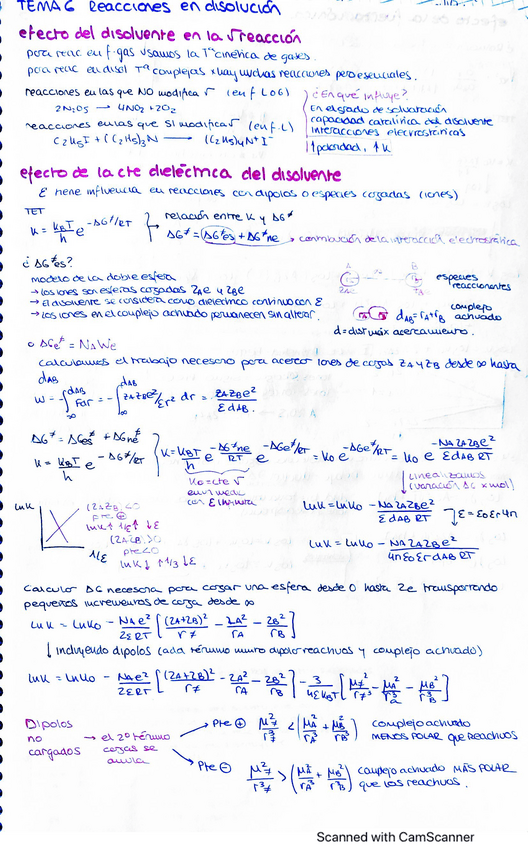 TEMA 6 Reacciones en disolución
efecto del disolvente en la √reacción
para reac en f.gas usamos la Tª cinética de gases.
para reac en disol Tª complejas x hay muchas reacciones pero esenciales.
reacciones en las que NO modifica √ (en f L o G)
2N₂O₅ → 4NO₂ + 2O₂
reacciones en las que SI modifica √ (en f.L)
C₂H₅I + (C₂H₅)₃N → (C₂H₅)₄N⁺I⁻
¿En qué influye?
En el grado de solvatación
capacidad catalítica del disolvente
interacciones electrostáticas
↑ polaridad, ↑ K
efecto de la cte dieléctrica del disolvente
ε tiene influencia en reacciones con dipolos o especies cargadas (iones)
TET
K = KBT/h e^-ΔG≠/RT
relación entre K y ΔG≠
ΔG≠ = ΔG≠es + ΔG≠ne → contribución de la interacción electrostática
¿ΔG≠es?
modelo de la doble esfera
→ los iones son esferas cargadas ZAe y ZBe
→ El disolvente se considera como dieléctrico continuo con ε
→ los iones en el complejo activado permanecen sin alterar.
A B
especies reaccionantes
complejo activado
dAB = rA + rB
d = dist máx acercamiento.
ΔGe≠ = NA We
calculamos el trabajo necesario para acercar iones de cargas ZA y ZB desde ∞ hasta
dAB
W = -∫∞^dAB Fdr = -∫∞^dAB ZAZBe²/εr² dr = ZAZBe²/εdAB.
ΔG≠ = ΔGes≠ + ΔGne≠
K = KBT/h e^-ΔG≠/RT
K = KBT/h e^-ΔG≠ne/RT e^-ΔGe≠/RT = Ko e^-ΔGe≠/RT = Ko e^-NAZAZBe²/εdABRT
Ko = cte √
en un medio
con ε infinita
linealizamos
(variación ΔG x mol)
lnK
(ZAZB) <0
pte ⊕
lnK ↑ 1/ε ↑ ↓ε
(ZAZB) >0
pte <0
lnK ↓ ↑1/ε ↓ε
1/ε
lnK = lnKo - NAZAZBe²/εdABRT
ε = εoεr4π
lnK = lnKo - NAZAZBe²/4πεoεrdABRT
Calcular ΔG necesaria para cargar una esfera desde 0 hasta Ze transportando
pequeños incrementos de carga desde ∞
lnK = lnKo - NAe²/2εRT [(ZA+ZB)²/r≠ - ZA²/rA - ZB²/rB]
↓ incluyendo dipolos (cada término muestra dipolo reactivos y complejo activado)
lnK = lnKo - NAe²/2εRT [(ZA+ZB)²/r≠ - ZA²/rA - ZB²/rB] - 3/4εKBT [μ≠²/r≠³ - μA²/rA³ - μB²/rB³]
Dipolos
no
cargados
→ el 2º término
cargas se
anula
→ Pte ⊕ μ²≠/r³≠ < (μA²/rA³ + μB²/rB³) complejo activado
MENOS POLAR que Reactivos
→ Pte ⊖ μ²≠/r³≠ > (μA²/rA³ + μB²/rB³) complejo activado MÁS POLAR
que los reactivos.
Scanned with CamScanner